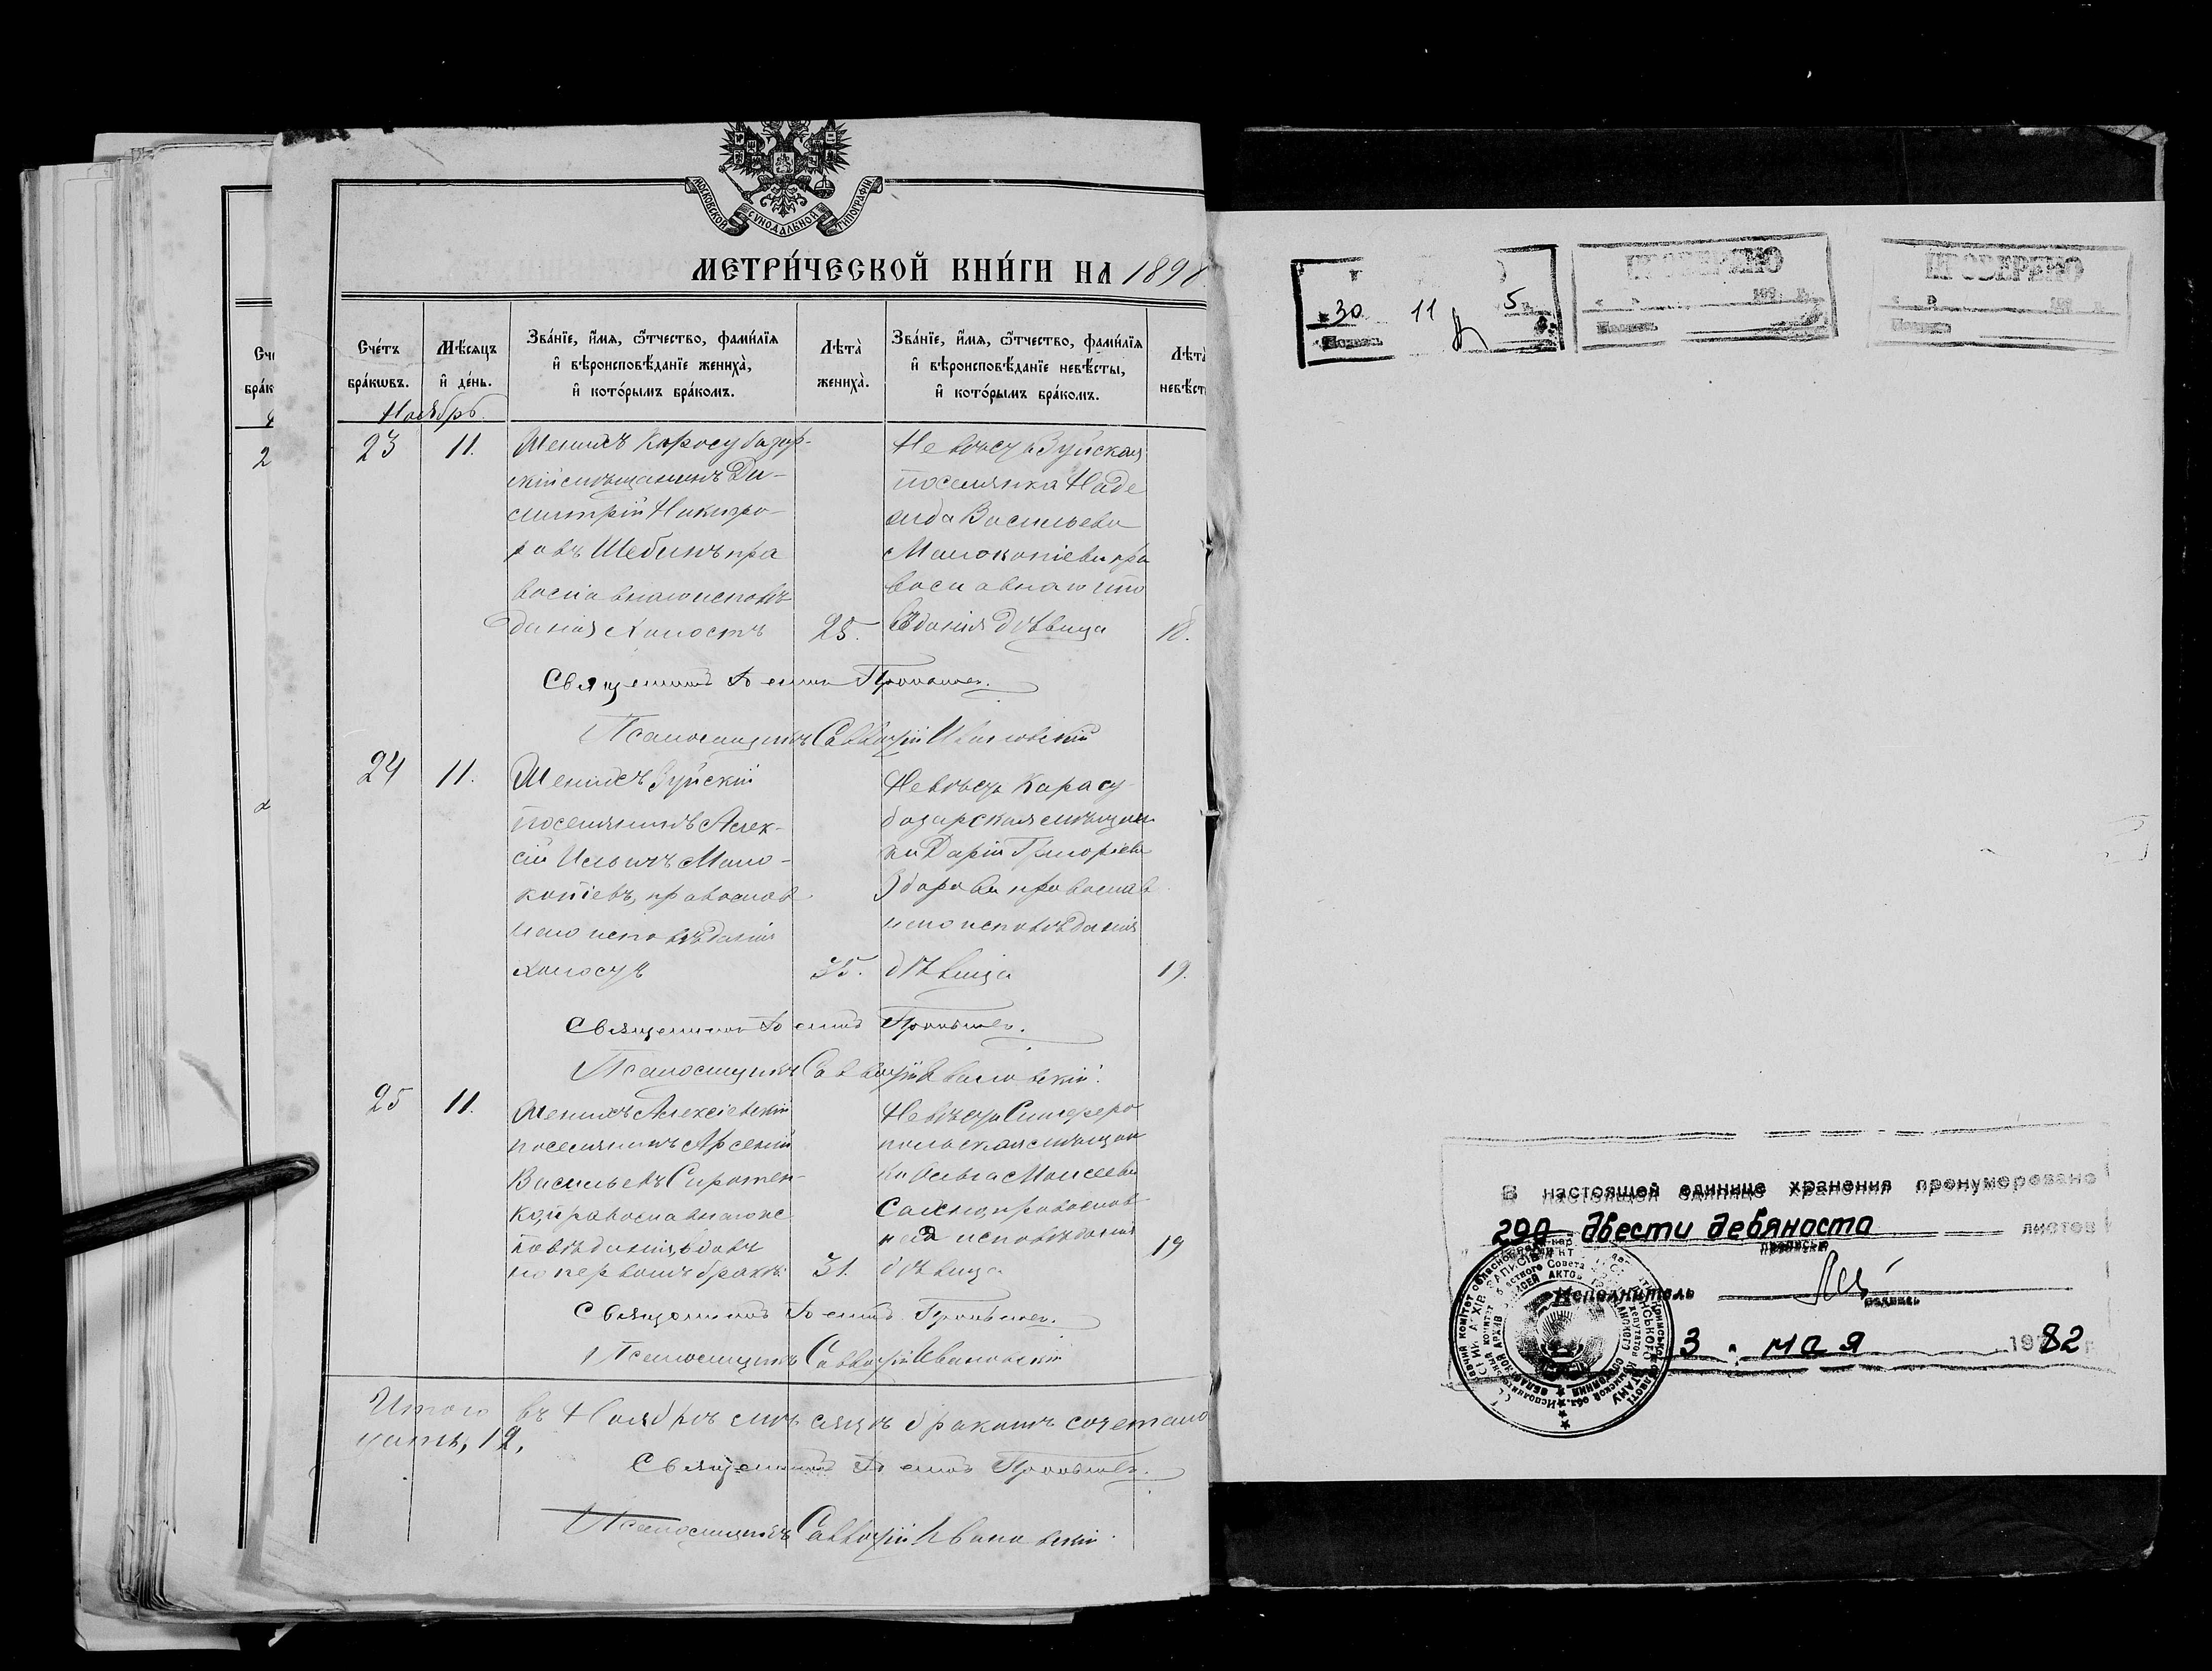 МОСКОВСКОЙ СУНОДАЛЬНОЙ ТИПОГРАФІИ.
МЕТРИ́ЧЕСКОЙ КНИ́ГИ НА 1898
Сче́тъ бра́кѡвъ.
Мѣ́сяцъ и҆ де́нь.
Зва́нїе, и҆́мѧ, ѻ҆́тчество, фами́лїѧ
и҆ вѣроисповѣ́данїе жениха̀,
и҆ кото́рымъ бра́комъ.
Лѣта̀ жениха̀.
Зва́нїе, и҆́мѧ, ѻ҆́тчество, фами́лїѧ
и҆ вѣроисповѣ́данїе невѣ́сты,
и҆ кото́рымъ бра́комъ.
Лѣта̀
невѣст
Ноябрь.
23
11.
Женихъ Карасубазар-
скій мѣщанинъ Ди-
митрій Никифо-
ровъ Шебинъ пра
вославнаго исповѣ
данія холостъ
25.
Невѣста Зуйская
поселянка Наде
жда Васильева
Малокотіева пра
вославнаго испо
вѣданія дѣвица
18.
Священникъ
Псаломщикъ Савватій Ивановскій
24
11.
Женихъ Зуйскій
поселянинъ Алек-
сій Ильинъ Мало-
котіевъ, православ
наго исповѣданія
холостъ
35.
Невѣста Карасу
базарская мѣщан
ка Дарія Григоріева
Здорова православ
наго исповѣданія
дѣвица
19.
Священникъ
Псаломщикъ Савватій Ивановскій.
25
11.
Женихъ Алексіевскій
поселянинъ Арсеній
Васильевъ Сиротен-
ко, православнаго ис
повѣданія, вдовъ
по первомъ бракѣ
31.
Невѣста Симферо
польская мѣщан
ка Ольга Моисеева
православ
исповѣданія
дѣвица
19
Священникъ
Псаломщикъ Савватій Ивановскій
Итого въ Ноябрѣ мѣсяцѣ бракомъ сочетано
12.
Священникъ
Псаломщикъ Савватій Ивановскій.
30 11 5
ПРОВЕРЕНО
ПРОВЕРЕНО
В настоящей единице хранения пронумеровано
290 двести девяноста листов
прописью
Исполнитель
подпись
3 мая 1982 г.